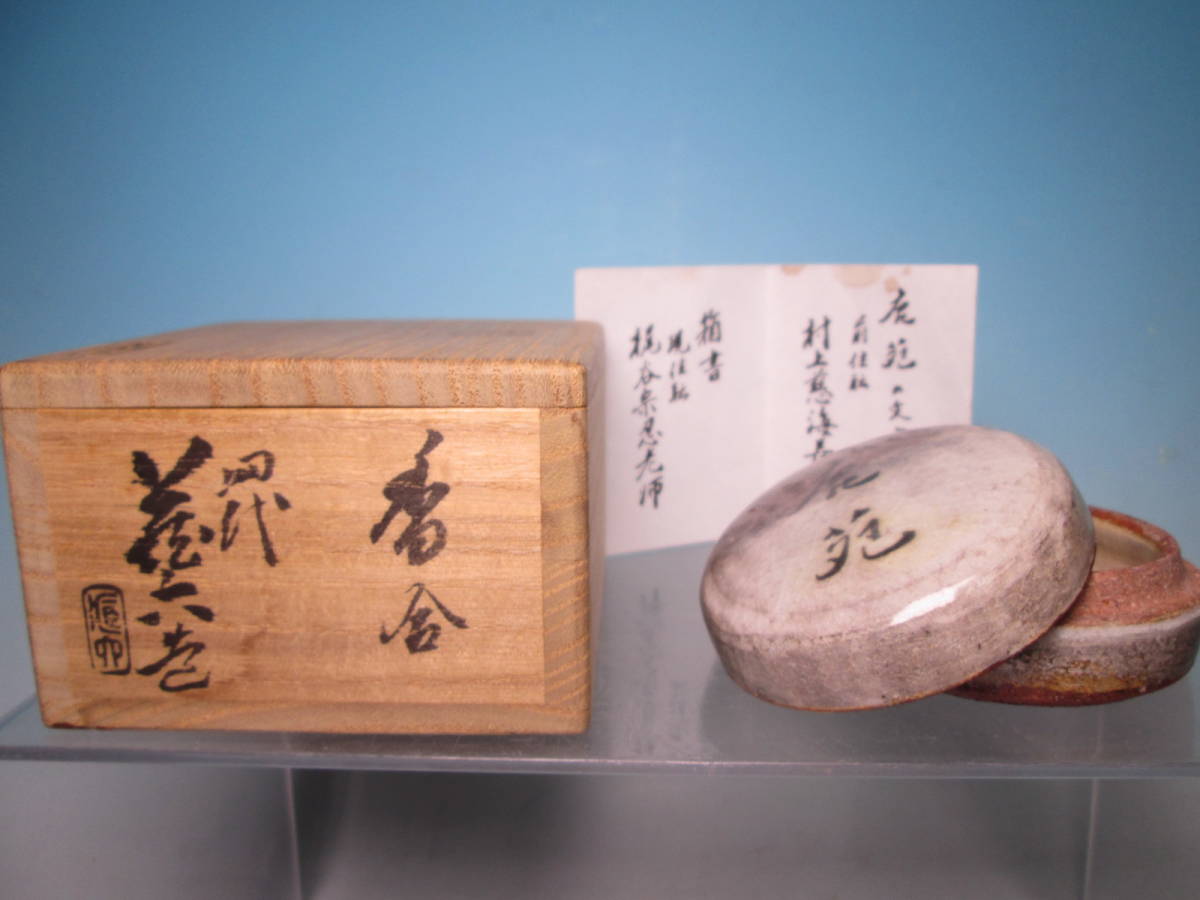 香合
四代
藏六造
鹿苑の文
前住職
村上慈海
箱書
現住職
梶谷宗忍老師
鹿苑